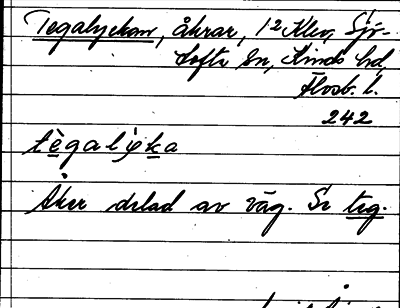 Tegalyckan, åkrar, 12 Klev, Sjö-
tofta sn, Kinds hd,
Älvsb. l.
242
tègalỳka
Åker delad av väg. Se teg.